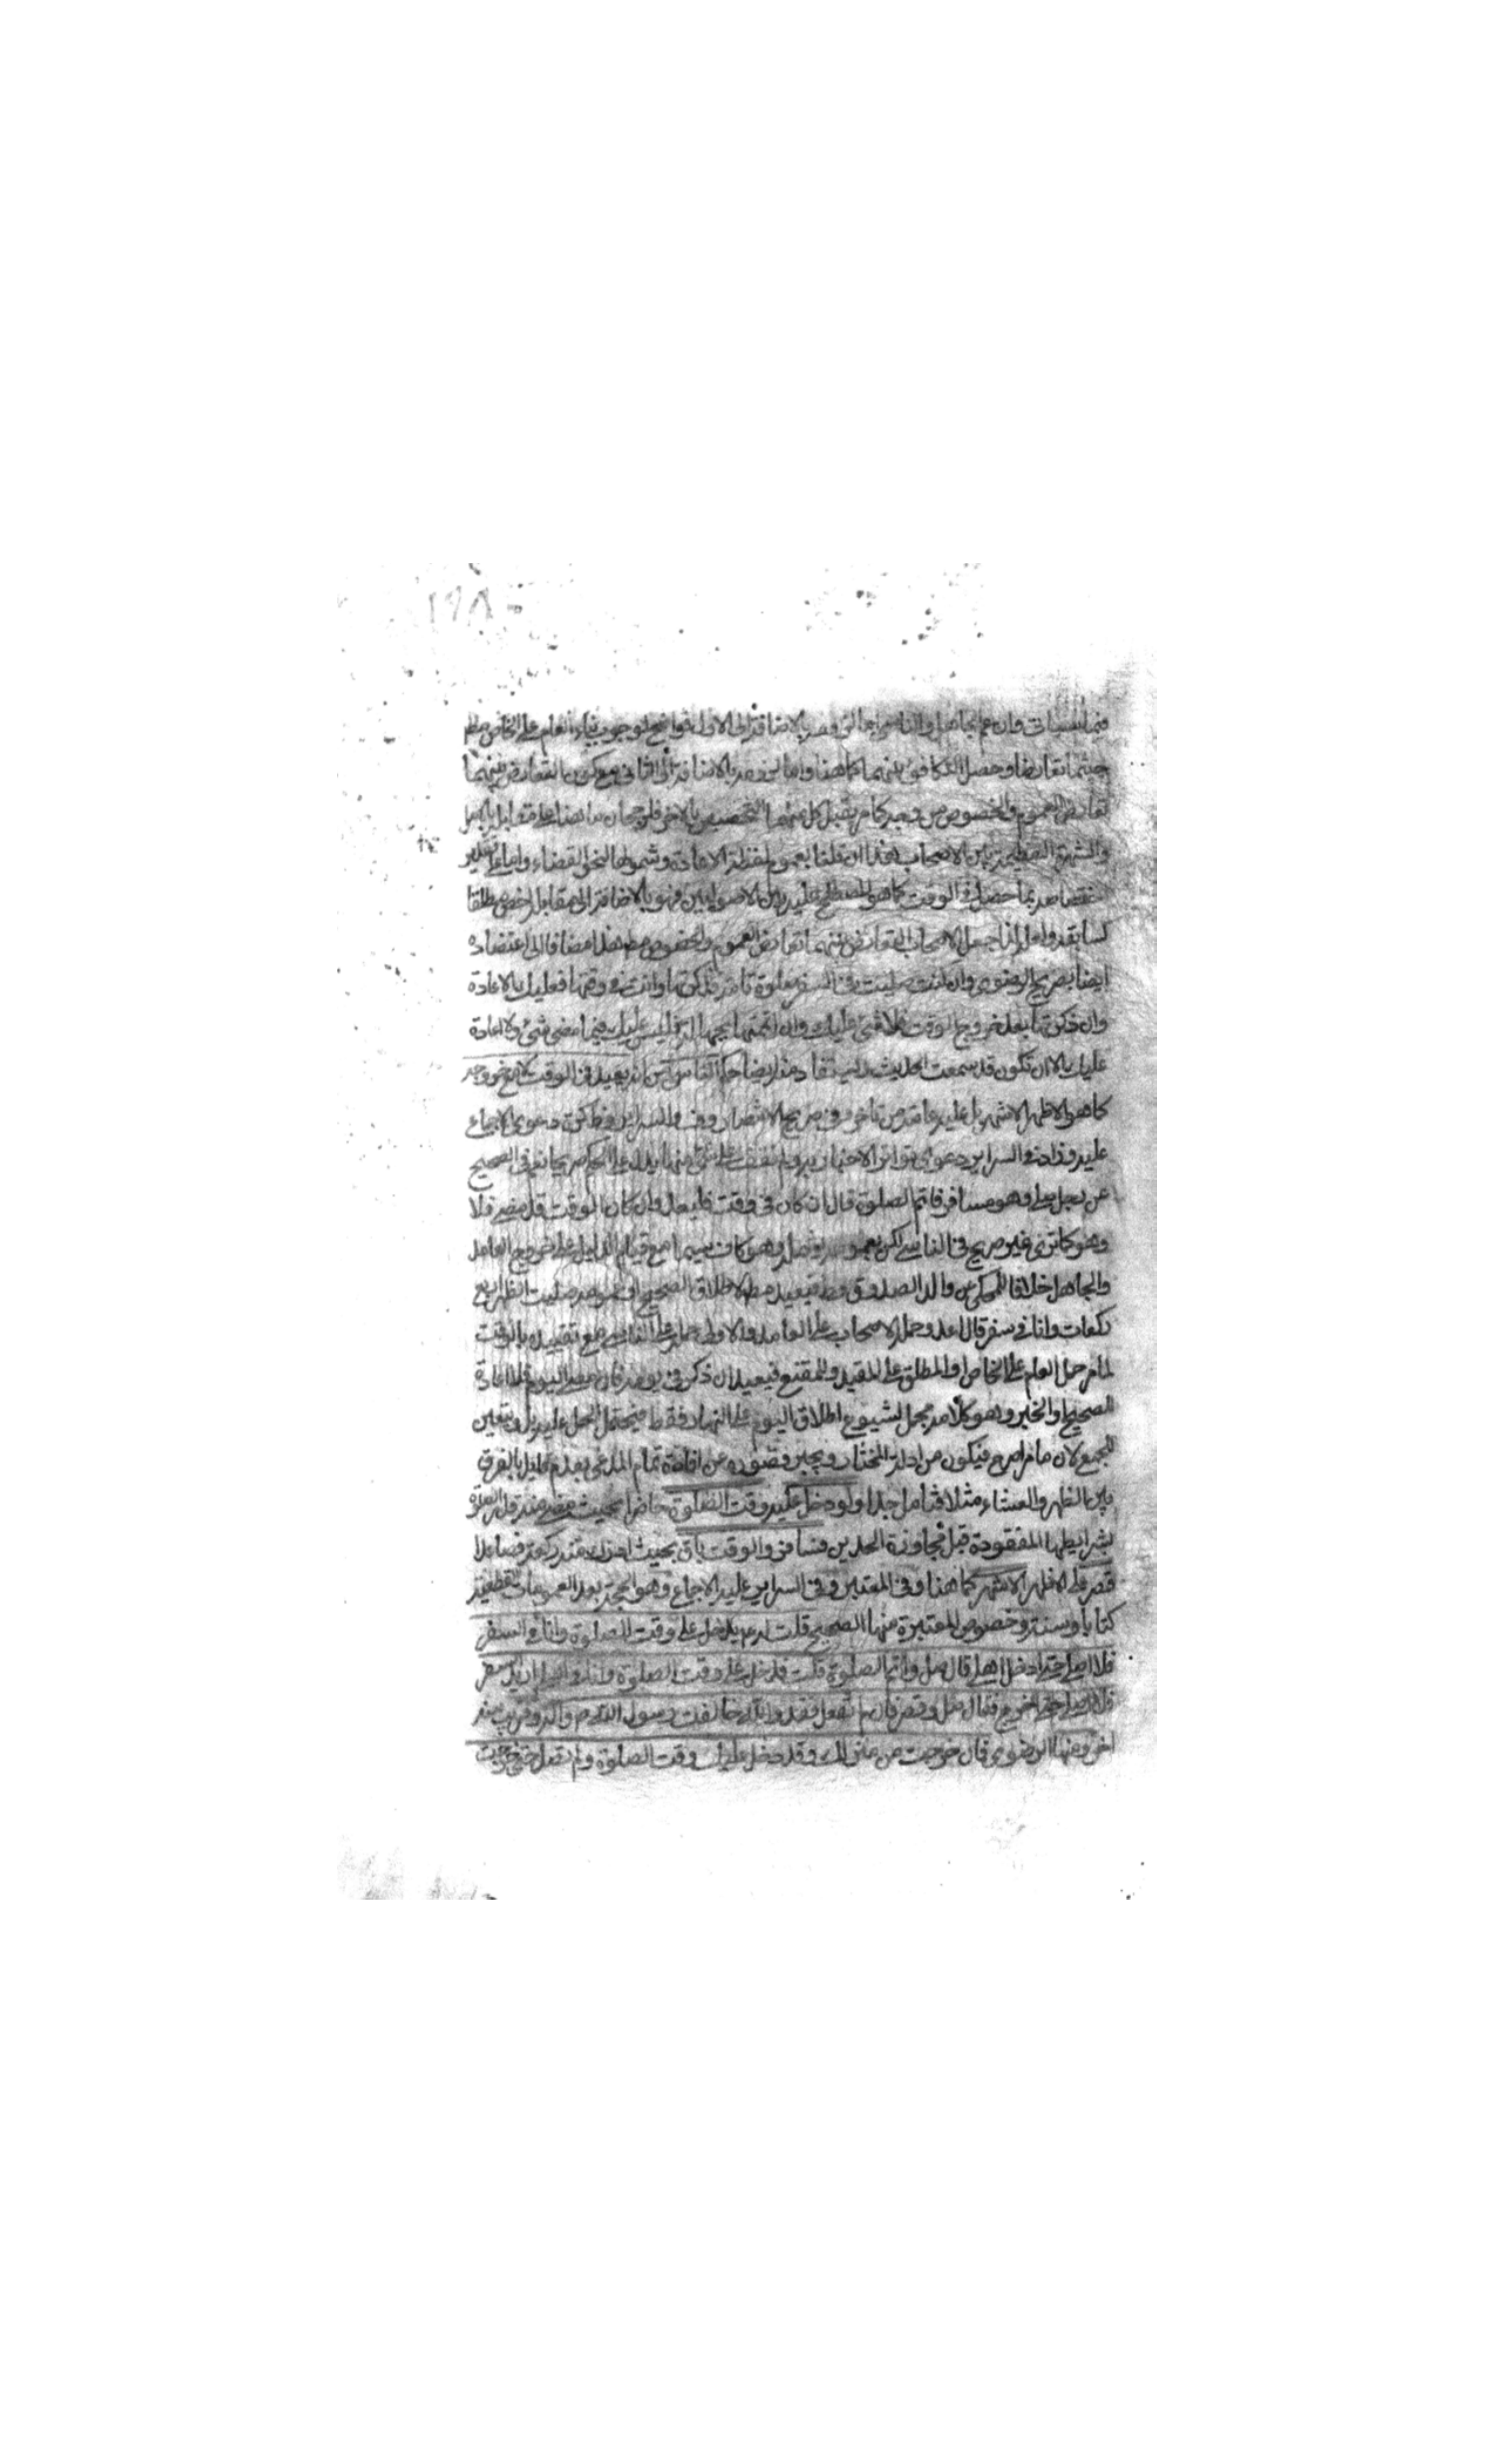 ١٩٨
حيثما تعارضا وحصل التكافؤ بينهما كما هنا واما بالاضافة الى الثاني التعارض بينهما
تعارض العموم والخصوص من وجه كما مر يقبل كل منهما التخصيص بالاخر
والشهرة العظيمة بين الاصحاب هذا ان قلنا بعموم لفظة الاعادة وشمولها لنحو القضاء واما على تقدير
اختصاصه بما حصل في الوقت كما هو المصطلح عليه بين الاصوليين فهو بالاضافة الى مقابله اخص مطلقا
كسابقه ولعله لذا جعل الاصحاب التعارض بينهما تعارض العموم والخصوص مط هذا مضافا الى اعتضاده
ايضا بصريح الرضوي وان كنت صليت في السفر صلوة تامة فذكرتها وانت في وقتها فعليك بالاعادة
وان ذكرتها بعد خروج الوقت فلا شئ عليك وان اتممتها بجهالة فليس عليك فيما مضى شئ ولا اعادة
عليك الا ان تكون قد سمعت الحديث منه ايضا حكم الناسي من انه يعيد في الوقت لا مع خروجه
كما هو الاظهر الاشهر بل عليه عامة من تاخر وفي صريح الانتصار وف والسرائر وظ كرة دعوى الاجماع
عليه وزاد في السرائر دعوى تواتر الاخبار به ولم نقف على شئ منها يدل على الحكم صريحا نعم في الصحيح
عن رجل صلى وهو مسافر فاتم الصلوة قال ان كان في وقت فليعد وان كان الوقت قد مضى فلا
وهو كما ترى غير صريح في الناسي لكن بعمومه وهو كاف سيما مع قيام الدليل على خروج العامد
والجاهل خلافا للمحكي عن والد الصدوق وط فيعيد مط لاطلاق الصحيح او عمومه صليت الظهر اربع
ركعات وانا في سفر قال اعد وحمله الاصحاب على العامد والاولى حمله على الناسي مع تقييده بالوقت
لما مر حمل العام على الخاص او المطلق على المقيد وللمقنع فيعيد ان ذكر في يومه فان مضى اليوم فلا اعادة
للصحيح او الخبر وهو كلامه مجمل لشيوع اطلاق اليوم على النهار فقط فيحتمل الحمل عليه بل ويتعين
للجمع لان ما مر اصرح فيكون من ادلة المختار ويجبر قصوره عن افادة تمام المدعى بعدم قايل بالفرق
بين الظهر والعشاء مثلا فتامل جدا ولو دخل عليه وقت الصلوة حاضرا بحيث مضى منه قدر الصلوة
بشرايطها المفقودة قبل مجاوزة الحدين فسافر والوقت باق بحيث ادرك منه ركعة فصاعدا
قصر على الاظهر الاشهر كما هنا وفي المعتبر وفي السراير عليه الاجماع وهو الحجة بعد العمومات القطعية
كتابا وسنة وخصوص المعتبرة منها الصحيح قلت له ع يدخل على وقت الصلوة وانا في السفر
فلا اصلي حتى ادخل اهلي قال صل واتم الصلوة قلت فدخل على وقت الصلوة وانا في اهلي اريد السفر
فلا اصلي حتى اخرج فقال صل وقصر فان لم تفعل فقد والله خالفت رسول الله ص والدو قريب منه
اخر ومنها الرضوي فان خرجت من منزلك وقد دخل عليك وقت الصلوة ولم تصل حتى خرجت